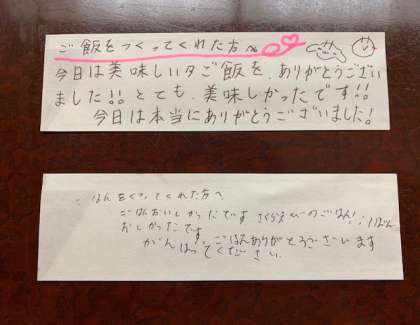 ご飯をつくってくれた方へ
今日は美味しい夕ご飯を、ありがとうござい
ました!! とても、美味しかったです!!
今日は本当にありがとうございました!
ごはんをくってくれた方へ
ごはんおいしかったです さくらえびのごはん
おしかったです。ごはんありがとうございます
がんばってください